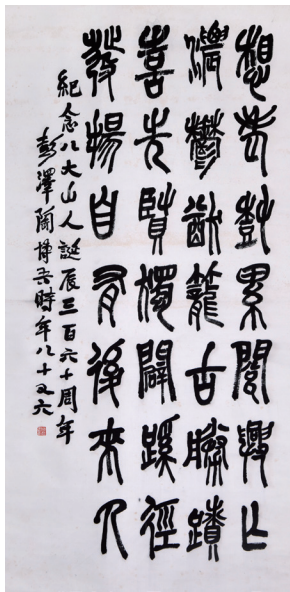 想老樹累閱興亡
濃鬱猶籠古勝蹟
喜先賢獨闢蹊徑
發揚自有後來人
紀念八大山人誕辰三百六十周年
彭澤陶博吾時年八十又六